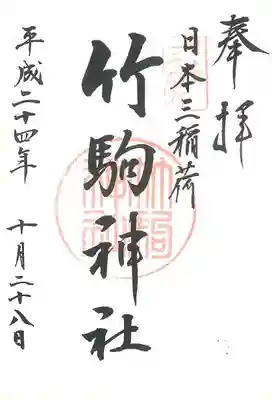 奉拝
日本三稲荷
竹駒神社
平成二十四年 十月二十八日